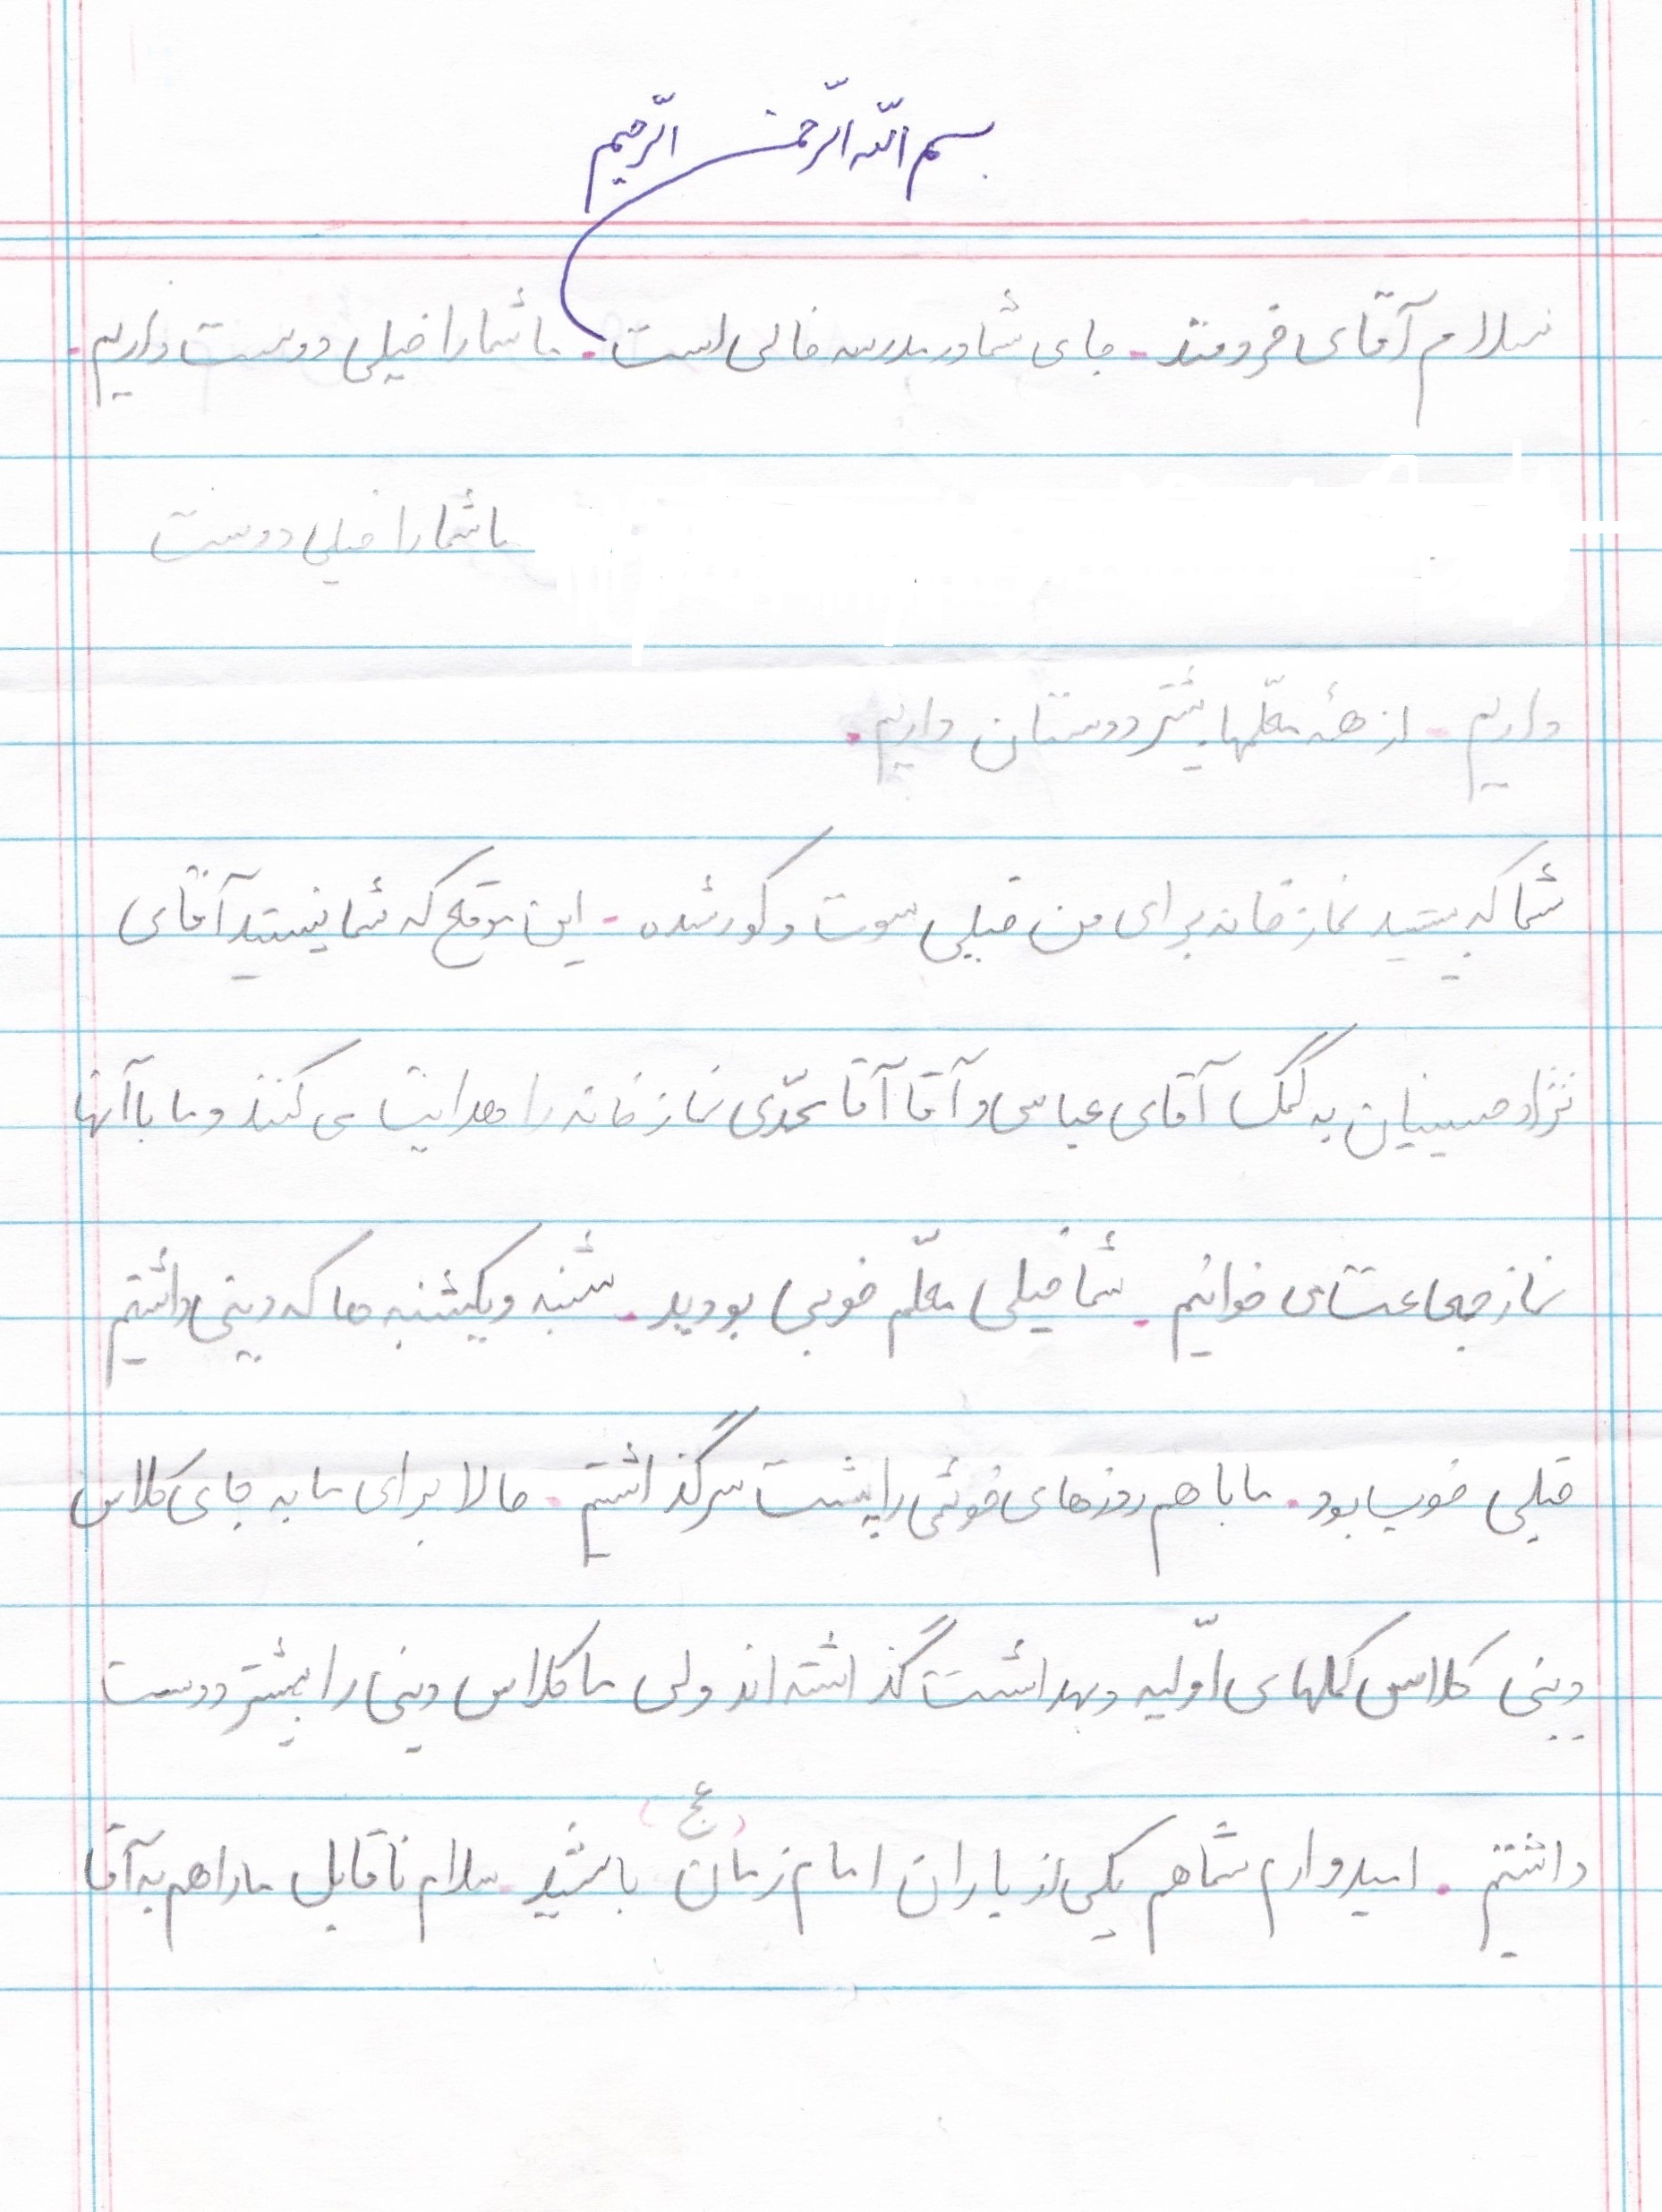 بسم الله الرّحمن الرّحیم
سلام آقای خردمند. جای شما در مدرسه خالی است. ما شما را خیلی دوست داریم.
ما شما را خیلی دوست
داریم. از همهٔ معلّمها بیشتر دوستتان داریم.
شما که نیستید نمازخانه برای من خیلی سوت و کور شده. این موقع که شما نیستید آقای
نژادحسینیان به کمک آقای عباسی و آقا آقا محمّدی نمازخانه را هدایت می کنند و ما با آنها
نماز جماعت می خوانیم. شما خیلی معلّم خوبی بودید. شنبه و یکشنبه ها که دینی داشتیم
خیلی خوب بود. ما با هم روزهای خوشی را پشت سر گذاشتیم. حالا برای ما به جای کلاس
دینی کلاس کمکهای اوّلیه و بهداشت گذاشته اند ولی ما کلاس دینی را بیشتر دوست
داشتیم. امیدوارم شما هم یکی از یاران امام زمان (عج) باشید. سلام ناقابل ما را هم به آقا